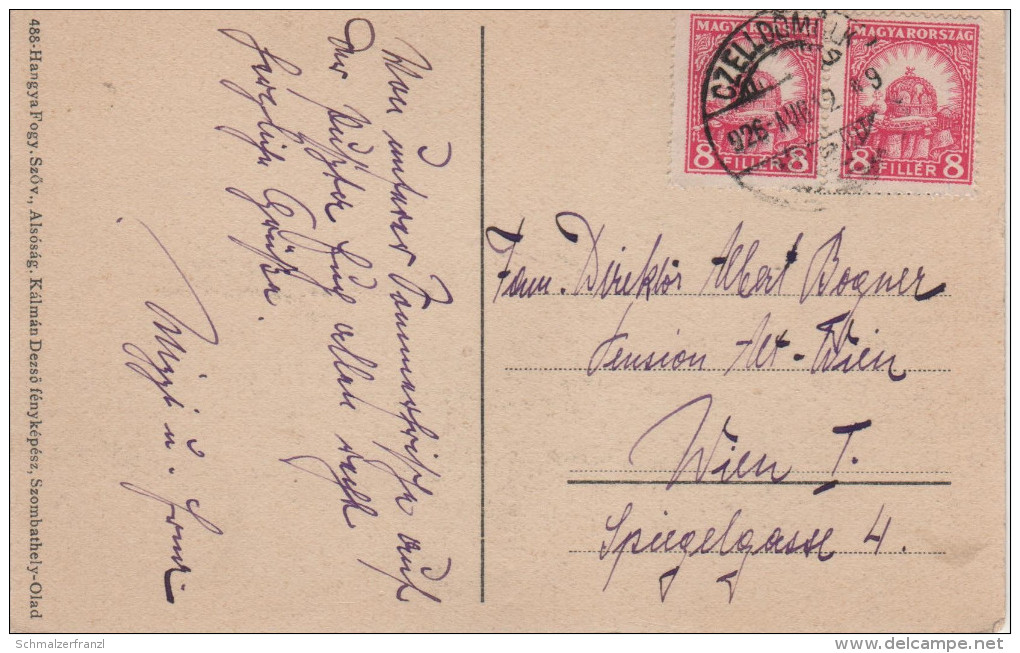 488-Hangya Fogy. Szöv., Alsóság. Kálmán Dezső fényképész, Szombathely-Olad
Von unserer Sommerfrische auf
der Puszta Euch allen recht
herzliche Grüße.
Mizzi u.
MAGYARORSZÁG
8 FILLÉR 8
MAGYARORSZÁG
8 FILLÉR 8
CZELLDÖMÖLK
926 AUG 12
Direktor Albert Bogner
Pension Alt-Wien
Wien I.
Spiegelgasse 4.
Schmalzerfranzl
delcampe.net